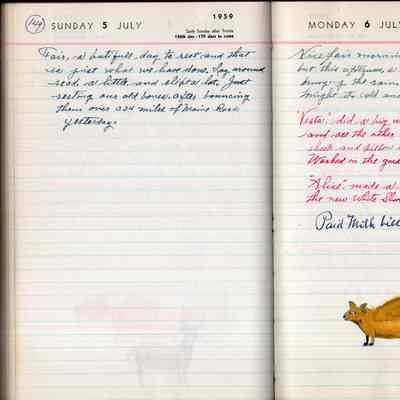 144
SUNDAY 5 JULY
1959
Sixth Sunday after Trinity
186th day - 179 days to come
Fair, a butifull day to rest, and that
is just what we have done. Lay around
read, a little, and slept a lot. Just
resting our old bones, after bouncing
them over 234 miles of Maine Road
yesterday.
MONDAY 6 JULY
Nice fair mornin
but this afternoon, a
of the same
tonight its cold an
"Vesta" did a big w
and all the other
sheets and pillow
Worked in the gar
"Alice" made a
the new White
Paid Milk Bill